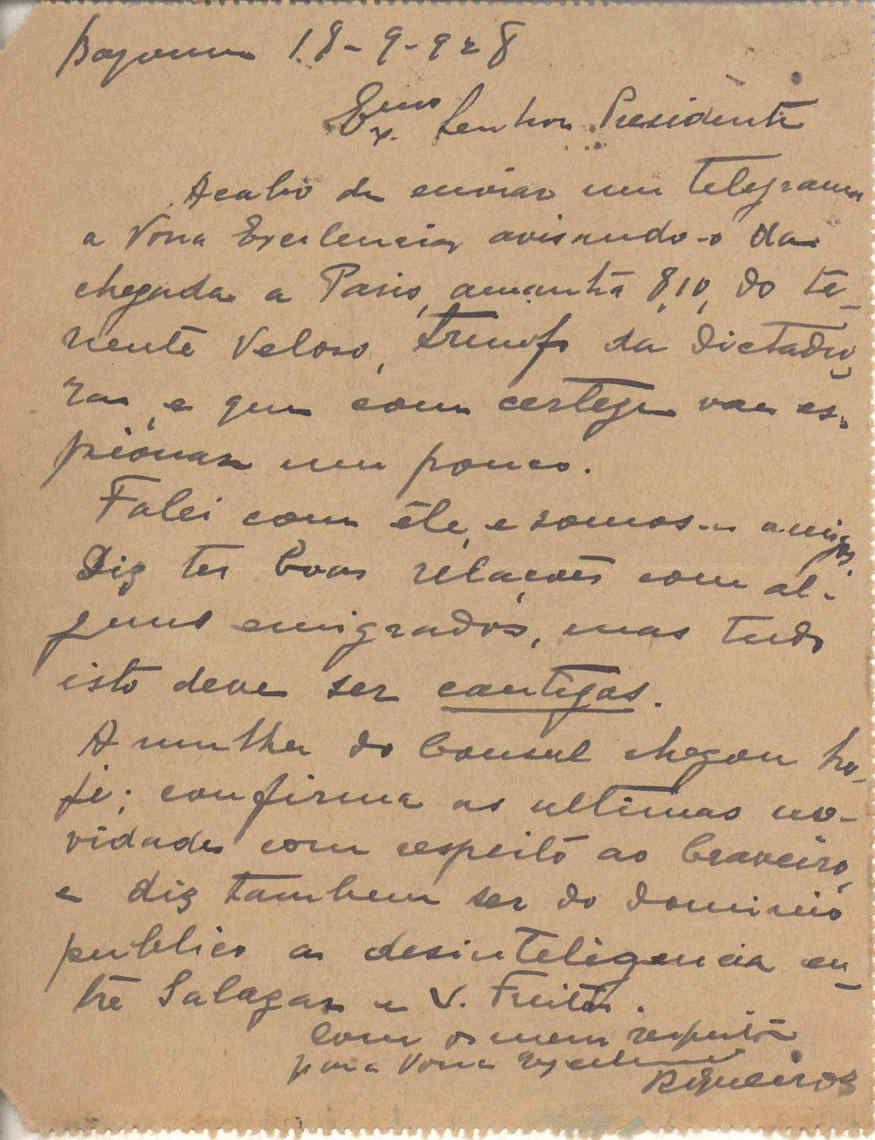 Bayonne 18-9-928
Exmo Senhor Presidente
Acabo de enviar um telegrama
a Vossa Excelencia avisando-o da
chegada a Paris, amanhã 8,10, do te-
nente Veloso, trunfo da dictadu-
ra, e que com certeza vae es-
pionar um pouco.
Falei com êle, e somos... amigos.
Diz ter boas relações com al-
guns emigrados, mas tudo
isto deve ser cantigas.
A mulher do Consul chegou ho-
je; confirma as ultimas no-
vidades com respeito ao Craveiro,
e diz tambem ser do dominio
publico a desinteligencia en-
tre Salazar e V. Freitas.
Com o meu respeito
para Vossa Excelencia